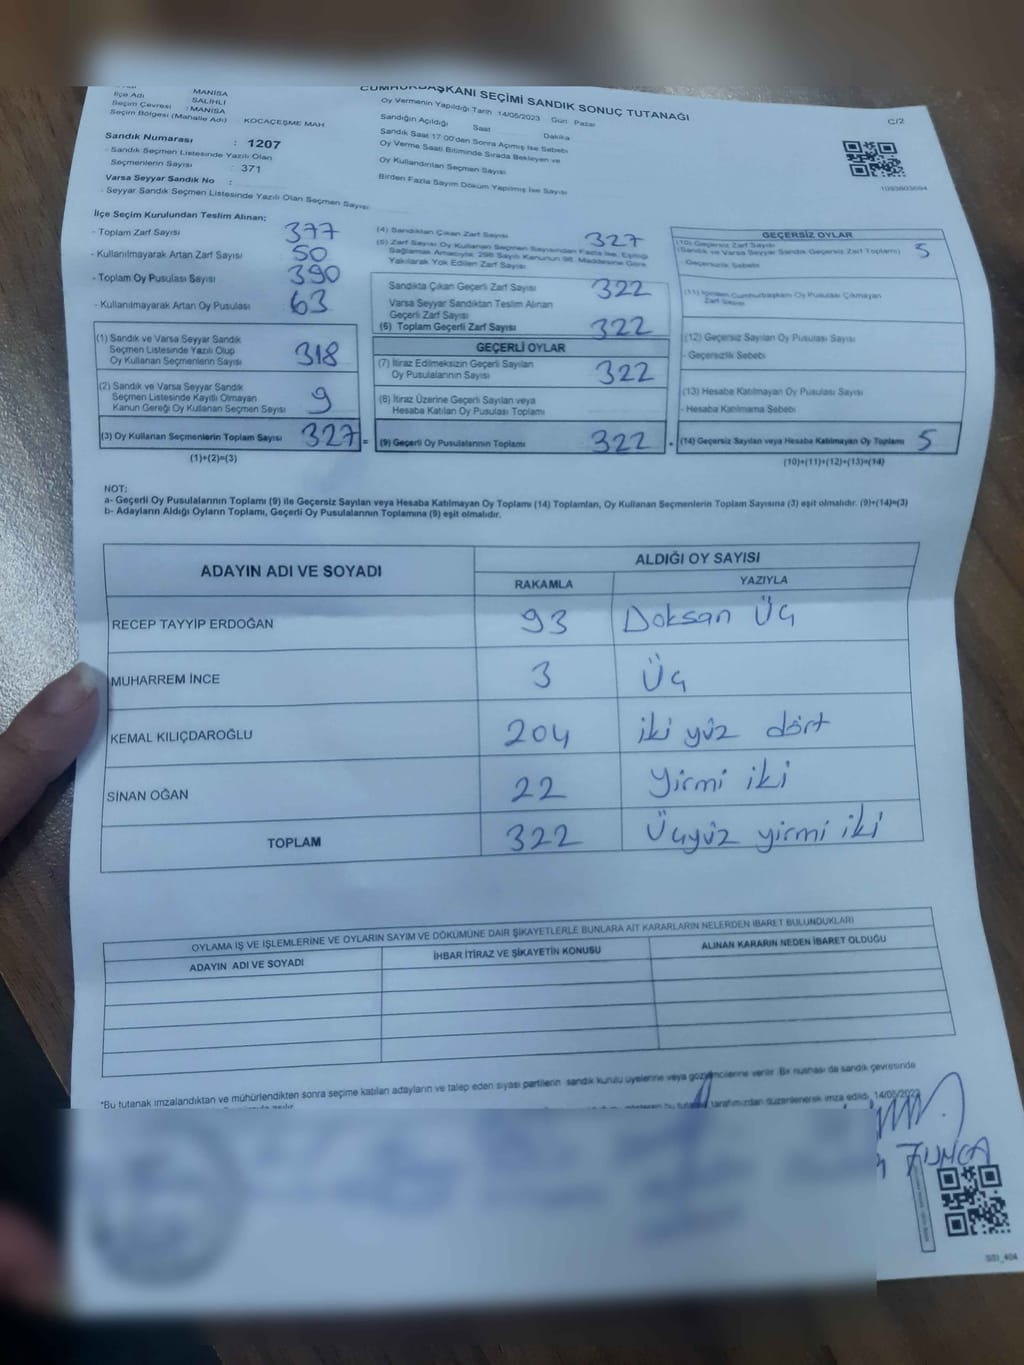 İlçe Adı MANİSA
Seçim Çevresi SALİHLİ
Seçim Bölgesi (Mahalle Adı) : MANİSA
KOCAÇEŞME MAH
Sandık Numarası : 1207
- Sandık Seçmen Listesinde Yazılı Olan
Seçmenlerin Sayısı : 371
Varsa Seyyar Sandık No :
- Seyyar Sandık Seçmen Listesinde Yazılı Olan Seçmen Sayısı
CUMHURBAŞKANI SEÇİMİ SANDIK SONUÇ TUTANAĞI
Oy Vermenin Yapıldığı Tarih 14/05/2023 Gün Pazar
Sandığın Açıldığı Saat Dakika
Sandık Saat 17.00'den Sonra Açılmış İse Sebebi
Oy Verme Saati Bitiminde Sırada Bekleyen ve
Oy Kullandırılan Seçmen Sayısı
Birden Fazla Sayım Döküm Yapılmış İse Sayısı
C/2
İlçe Seçim Kurulundan Teslim Alınan:
- Toplam Zarf Sayısı 377
- Kullanılmayarak Artan Zarf Sayısı 50
- Toplam Oy Pusulası Sayısı 390
- Kullanılmayarak Artan Oy Pusulası 63
(1) Sandık ve Varsa Seyyar Sandık
Seçmen Listesinde Yazılı Olup
Oy Kullanan Seçmenlerin Sayısı 318
(2) Sandık ve Varsa Seyyar Sandık
Seçmen Listesinde Kayıtlı Olmayan
Kanun Gereği Oy Kullanan Seçmen Sayısı 9
(3) Oy Kullanan Seçmenlerin Toplam Sayısı 327 =
(1)+(2)=(3)
(4) Sandıktan Çıkan Zarf Sayısı 327
(5) Zarf Sayısı Oy Kullanan Seçmen Sayısından Fazla İse, Eşitliği
Sağlamak Amacıyla, 298 Sayılı Kanunun 98. Maddesine Göre
Yakılarak Yok Edilen Zarf Sayısı
Sandıkta Çıkan Geçerli Zarf Sayısı 322
Varsa Seyyar Sandıktan Teslim Alınan
Geçerli Zarf Sayısı
(6) Toplam Geçerli Zarf Sayısı 322
GEÇERLİ OYLAR
(7) İtiraz Edilmeksizin Geçerli Sayılan
Oy Pusulalarının Sayısı 322
(8) İtiraz Üzerine Geçerli Sayılan veya
Hesaba Katılan Oy Pusulası Toplamı
(9) Geçerli Oy Pusulalarının Toplamı 322 +
GEÇERSİZ OYLAR
(10) Geçersiz Zarf Sayısı
(Sandık ve Varsa Seyyar Sandık Geçersiz Zarf Toplamı) 5
- Geçersizlik Sebebi
(11) İçinden Cumhurbaşkanı Oy Pusulası Çıkmayan
Zarf Sayısı
(12) Geçersiz Sayılan Oy Pusulası Sayısı
- Geçersizlik Sebebi
(13) Hesaba Katılmayan Oy Pusulası Sayısı
- Hesaba Katılmama Sebebi
(14) Geçersiz Sayılan veya Hesaba Katılmayan Oy Toplamı 5
(10)+(11)+(12)+(13)=(14)
NOT:
a- Geçerli Oy Pusulalarının Toplamı (9) ile Geçersiz Sayılan veya Hesaba Katılmayan Oy Toplamı (14) Toplamları, Oy Kullanan Seçmenlerin Toplam Sayısına (3) eşit olmalıdır. (9)+(14)=(3)
b- Adayların Aldığı Oyların Toplamı, Geçerli Oy Pusulalarının Toplamına (9) eşit olmalıdır.
ADAYIN ADI VE SOYADI ALDIĞI OY SAYISI
RAKAMLA YAZIYLA
RECEP TAYYİP ERDOĞAN 93 Doksan Üç
MUHARREM İNCE 3 Üç
KEMAL KILIÇDAROĞLU 204 iki yüz dört
SİNAN OĞAN 22 yirmi iki
TOPLAM 322 Üçyüz yirmi iki
OYLAMA İŞ VE İŞLEMLERİNE VE OYLARIN SAYIM VE DÖKÜMÜNE DAİR ŞİKAYETLERLE BUNLARA AİT KARARLARIN NELERDEN İBARET BULUNDUKLARI
ADAYIN ADI VE SOYADI İHBAR İTİRAZ VE ŞİKAYETİN KONUSU ALINAN KARARIN NEDEN İBARET OLDUĞU
*Bu tutanak imzalandıktan ve mühürlendikten sonra seçime katılan adayların ve talep eden siyasi partilerin sandık kurulu üyelerine veya gözlemcilerine verilir. Bir nüshası da sandık çevresinde
tarafımızdan düzenlenerek imza edildi. 14/05/2023